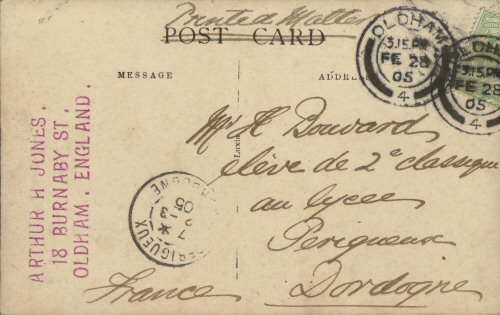 Printed Matter
POST CARD
MESSAGE
ADDRESS
OLDHAM
3.15.PM
FE 28
05
4
OLDHAM
3.15.PM
FE 28
05
4
ARTHUR H JONES.
18 BURNABY ST.
OLDHAM. ENGLAND.
Mr H Bouvard
élève de 2e classique
au lycée
Perigueux
Dordogne
France
PERIGUEUX
DORDOGNE
05